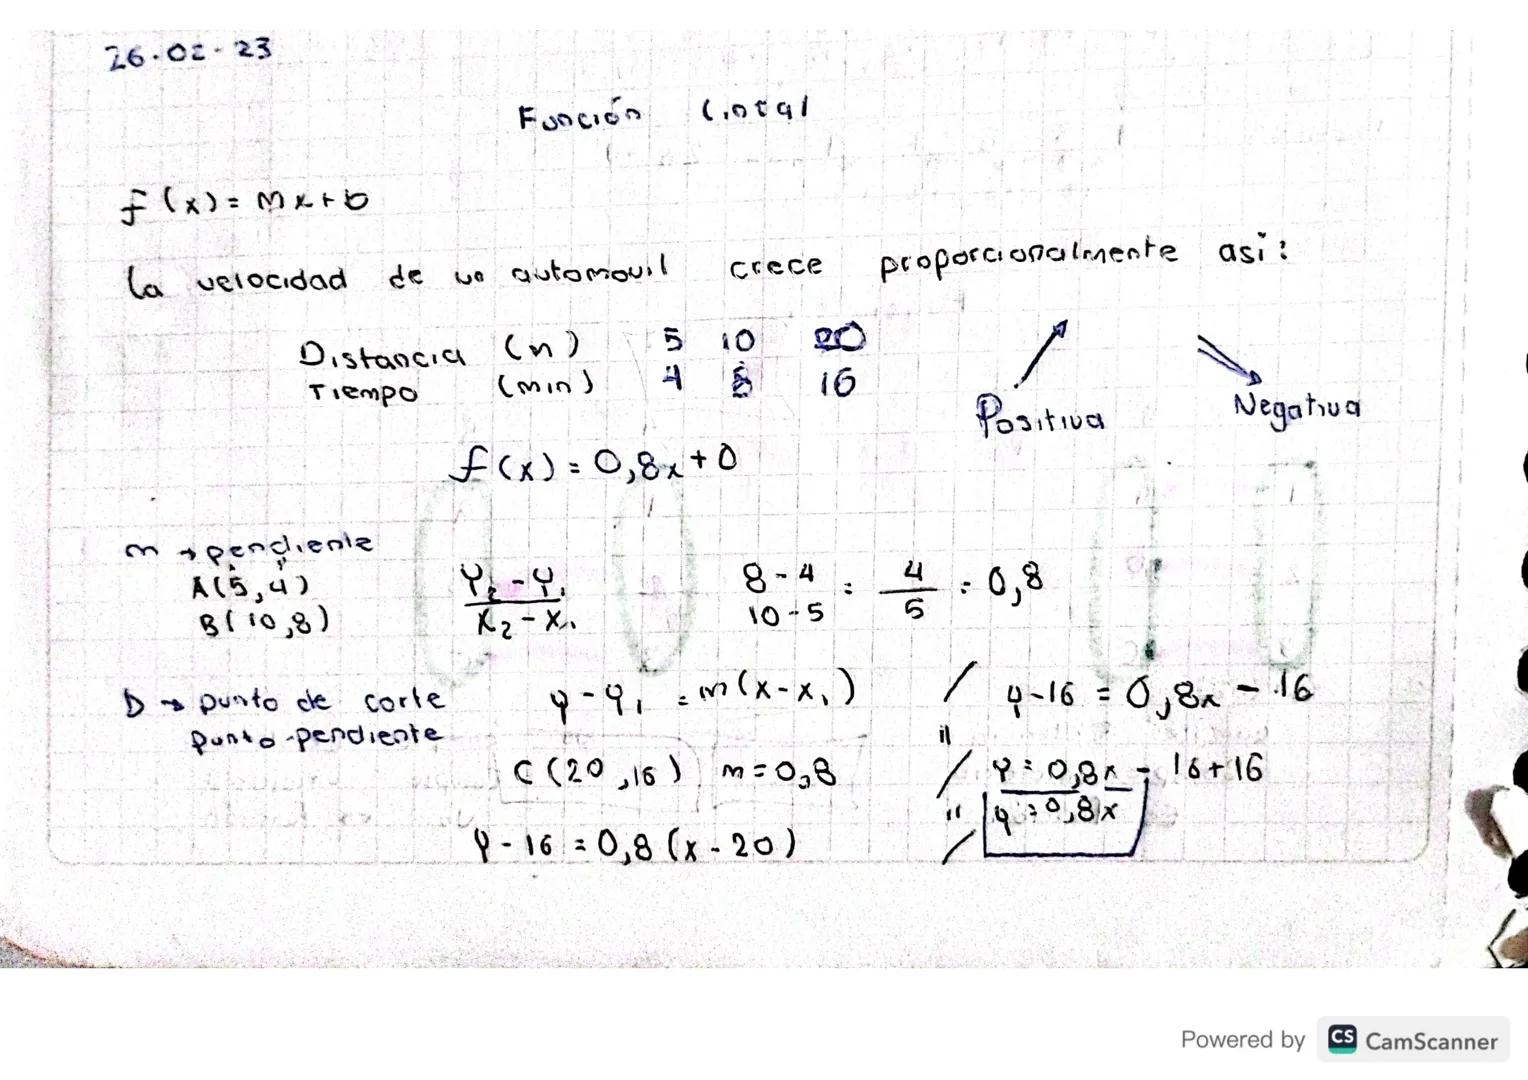 26-02-23
Función Lineal
f(x) = mx+b
La velocidad de un automovil crece proporcionalmente asi:
Distancia (m) 5 10 20
Tiempo (min) 4 8 16
Positiva
Negativa
f(x) = 0,8x + 0
m → pendiente
A(5,4)
B(10,8)
Y₂ - Y₁ / X₂ - X₁
8 - 4 / 10 - 5 = 4/5 = 0,8
b → punto de corte
punto-pendiente
y - y₁ = m(x - x₁)
C(20,16) m = 0,8
y - 16 = 0,8(x - 20)
y - 16 = 0,8x - 16
y = 0,8x - 16 + 16
y = 0,8x
Powered by CS CamScanner